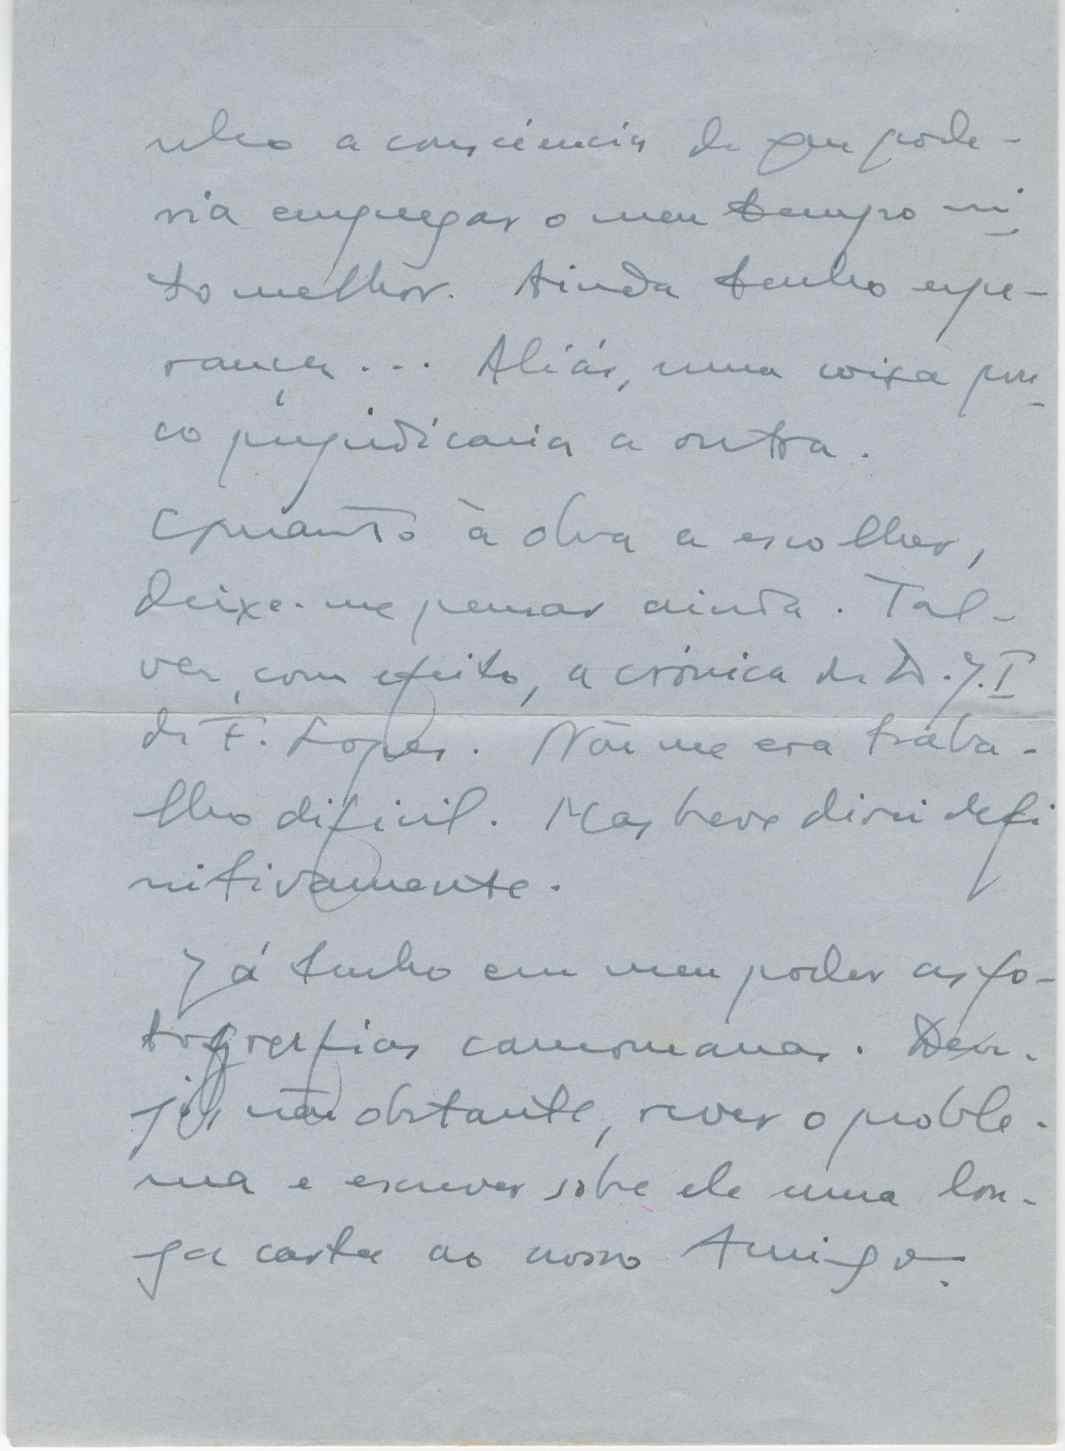 nho a consciência de que pode-
ria empregar o meu tempo mi
to melhor. Ainda tenho espe-
rança... Aliás, uma coisa pou
co prejudicaria a outra.
Quanto à obra a escolher,
deixe-me pensar ainda. Tal-
vez, com efeito, a crónica de D. J. I
de F. Lopes. Não me era traba-
lho difícil. Mas breve direi defi
nitivamente.
Já tenho em meu poder as fo-
tografias camonianas. Dese-
jo, não obstante, rever o proble-
ma e escrever sobre ele uma lon-
ga carta ao nosso Amigo.